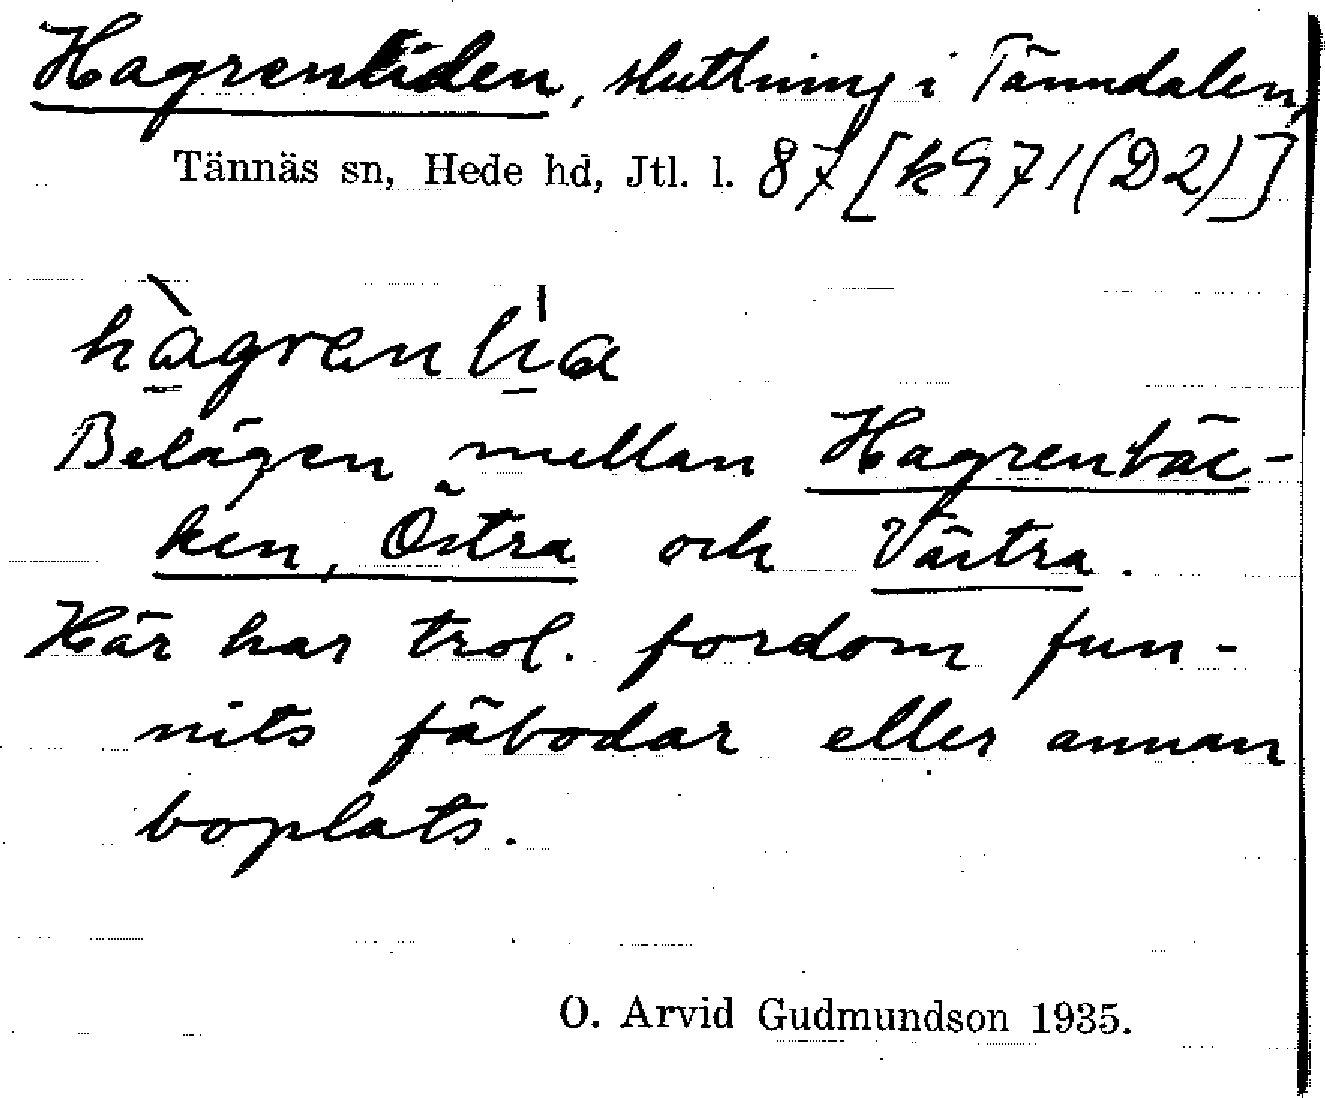 Hagrenliden, sluttning i Tänndalen,
Tännäs sn, Hede hd, Jtl. l. 87 [k971(D2)]
hàgrenlia
Belägen mellan Hagrenbäc-
ken, Östra och Västra.
Här har trol. fordom fun-
nits fäbodar eller annan
boplats.
O. Arvid Gudmundson 1935.